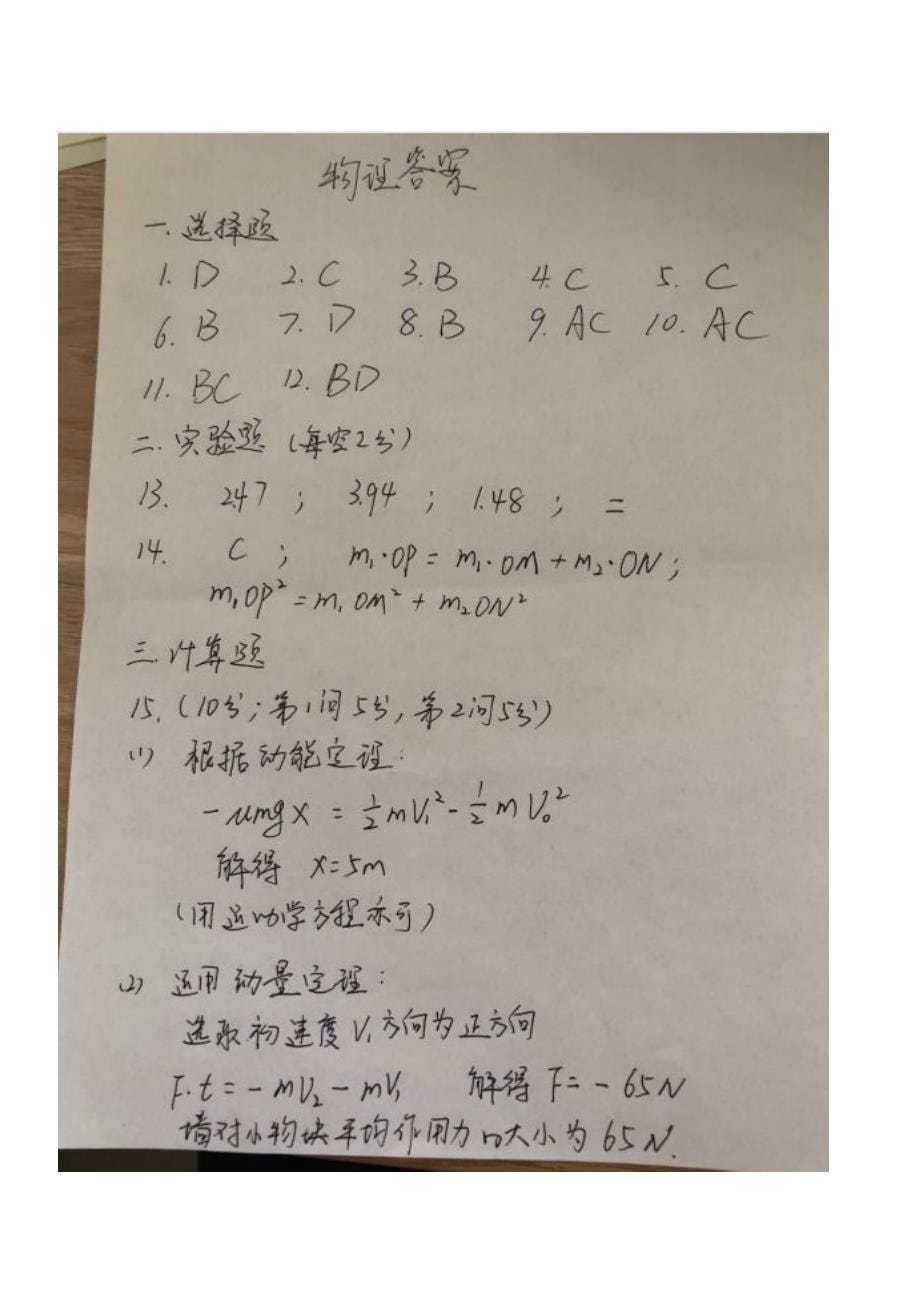 物理答案
一、选择题
1. D 2. C 3. B 4. C 5. C
6. B 7. D 8. B 9. AC 10. AC
11. BC 12. BD
二、实验题 (每空2分)
13. 2.47 ; 3.94 ; 1.48 ; =
14. C ; m₁·OP = m₁·OM + m₂·ON ;
m₁OP² = m₁OM² + m₂ON²
三、计算题
15. (10分;第1问5分,第2问5分)
(1) 根据动能定理:
-μmgx = ½mV₁² - ½mV₀²
解得 x=5m
(用运动学方程亦可)
(2) 运用动量定理:
选取初速度V₁方向为正方向
F·t = -mV₂ - mV₁ 解得 F= -65N
墙对小物块平均作用力的大小为65N.